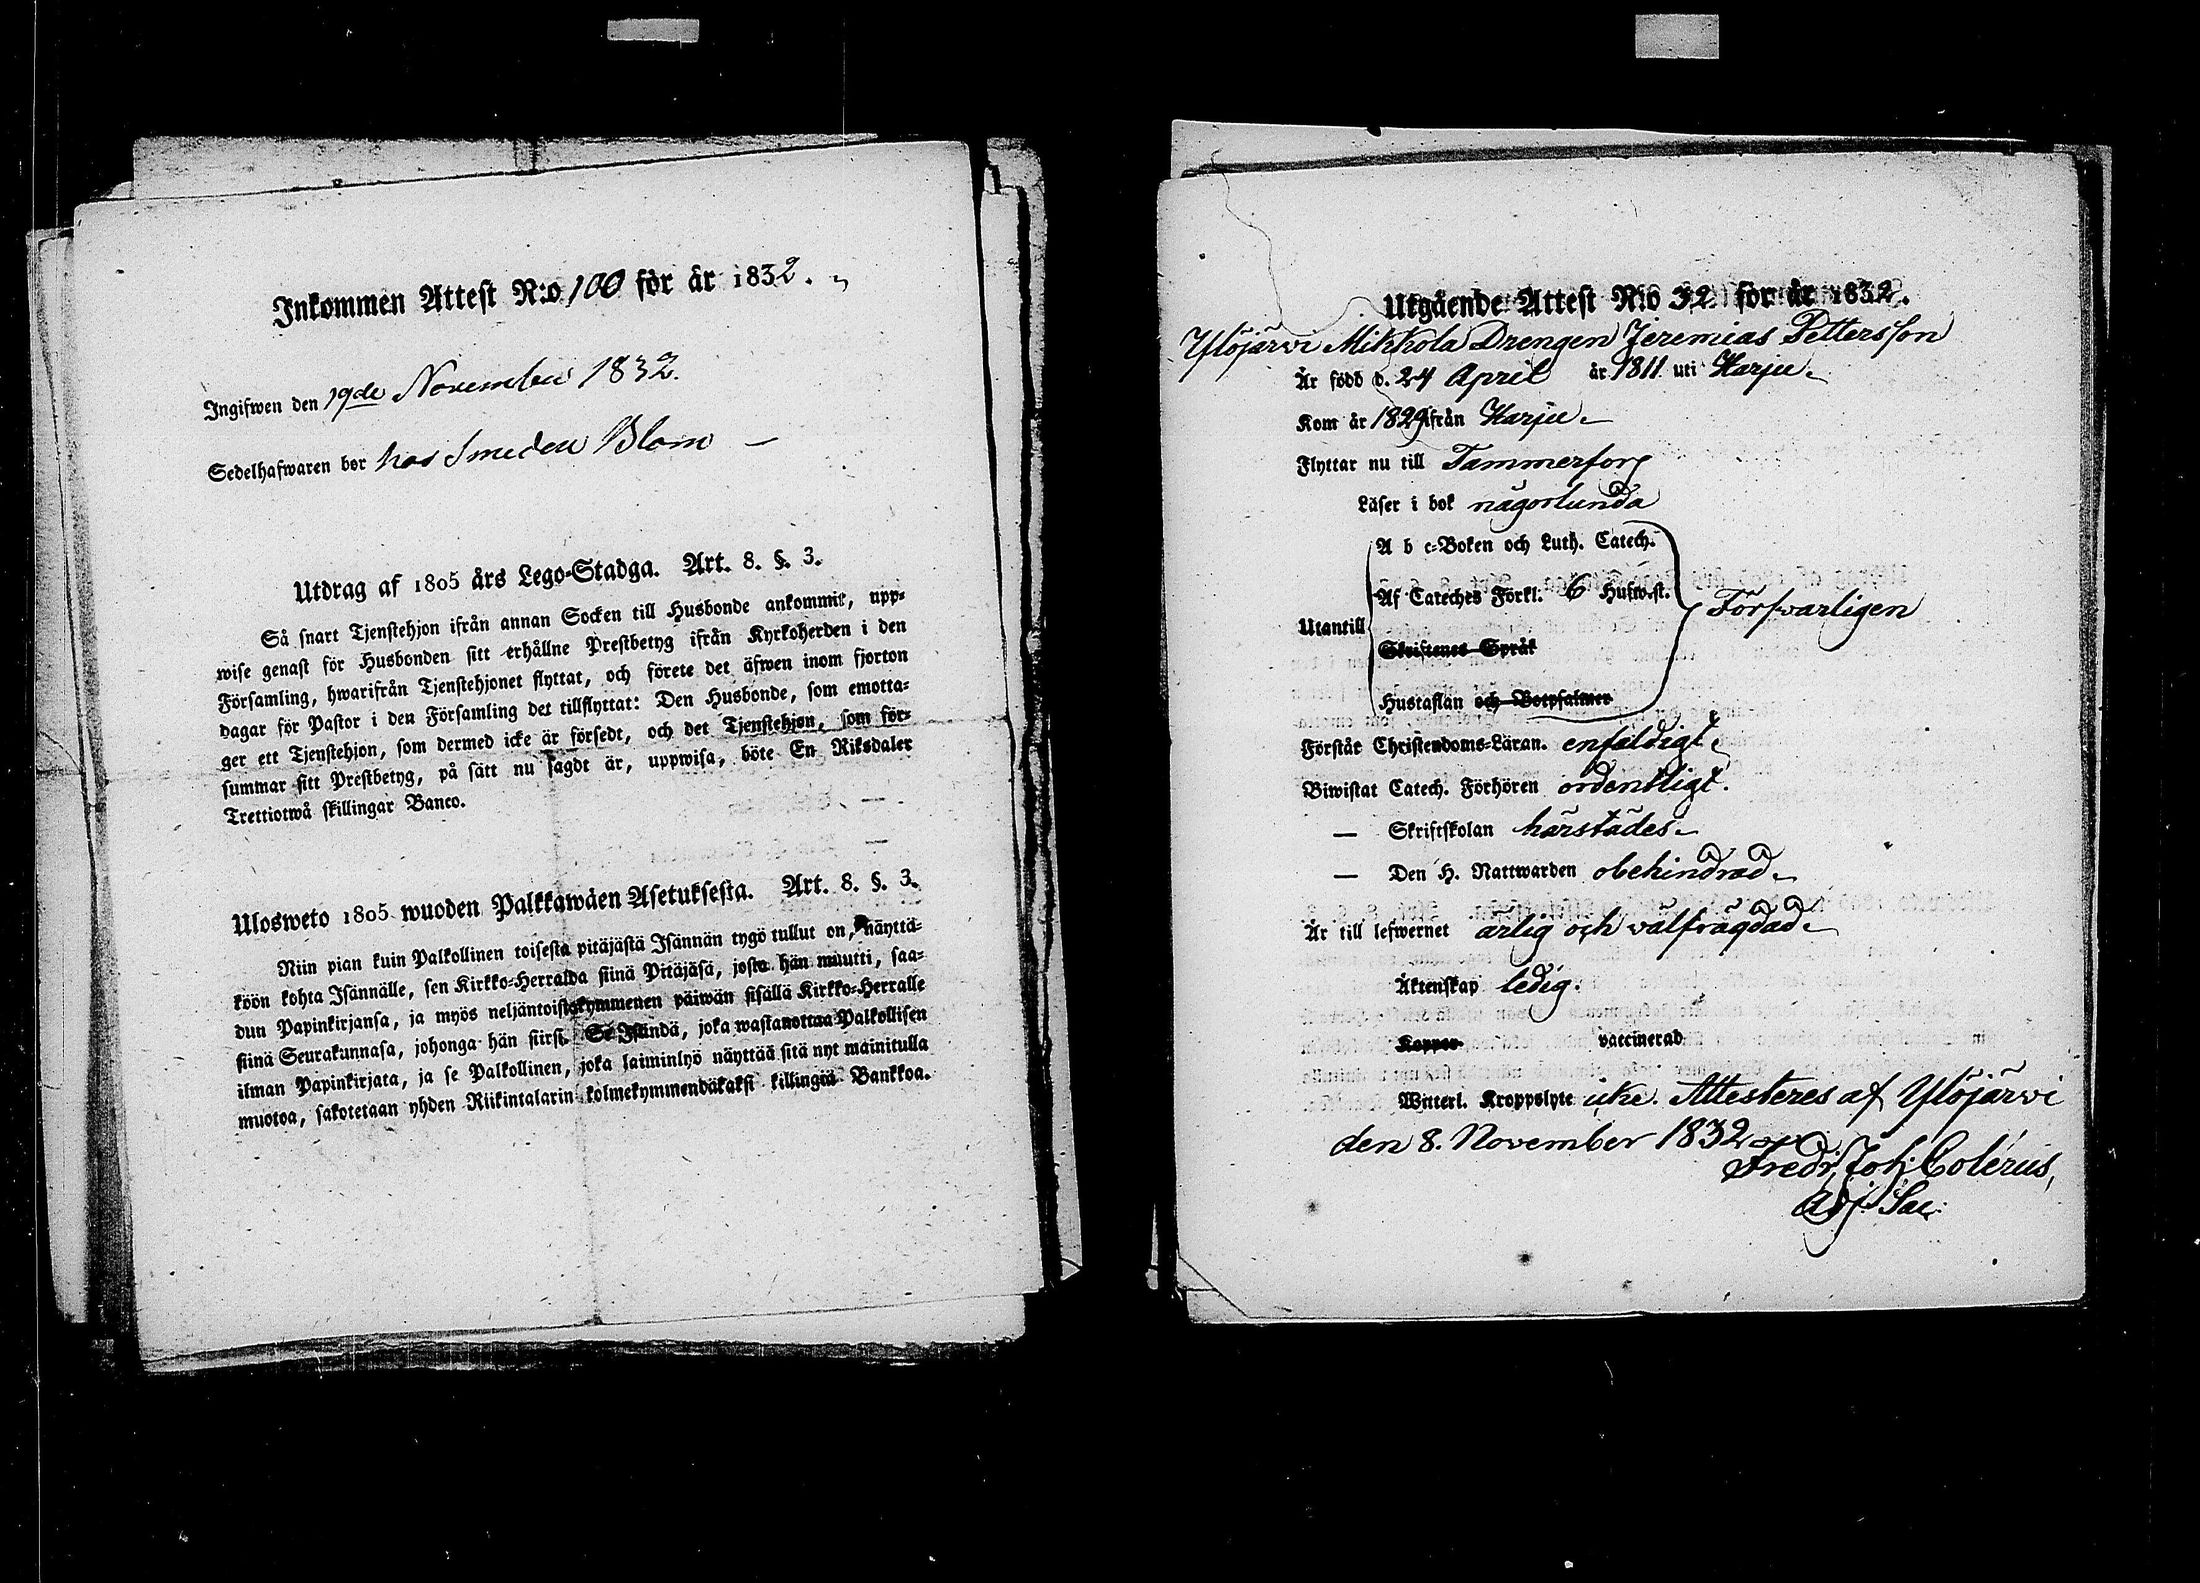 Inkommen Attest N:o 100 för år 1832.
Ingifwen den 19de November 1832.
Sedelhafwaren bor hos Smeden Blom —
Utdrag af 1805 års Lego-Stadga. Art. 8. §. 3.
Så snart Tjenstehjon ifrån annan Socken till Husbonde ankommit, upp-
wise genast för Husbonden sitt erhållne Prestbetyg ifrån Kyrkoherden i den
Församling, hwarifrån Tjenstehjonet flyttat, och förete det äfwen inom fjorton
dagar för Pastor i den Församling det tillflyttat: Den Husbonde, som emotta-
ger ett Tjenstehjon, som dermed icke är försedt, och det Tjenstehjon, som för-
summar sitt Prestbetyg, på sätt nu sagdt är, uppwisa, böte En Riksdaler
Trettiotwå skillingar Banco.
Ulosweto 1805 wuoden Palkkawäen Asetuksesta. Art. 8. §. 3.
Niin pian kuin Palkollinen toisesta pitäjästä Isännän tygö tullut on, näyttä-
köön kohta Isännälle, sen Kirkko-Herralda siinä Pitäjäsä, josta hän muutti, saa-
dun Papinkirjansa, ja myös neljäntoistakymmenen päiwän sisällä Kirkko-Herralle
siinä Seurakunnasa, johonga hän siirsi. Se Isändä, joka wastanottaa Palkollisen
ilman Papinkirjata, ja se Palkollinen, joka laiminlyö näyttää sitä nyt mainitulla
muotoa, sakotetaan yhden Riikintalarin kolmekymmendäkaksi killingiä Bankkoa.
Utgående Attest N:o 32 för år 1832.
Ylöjärwi Mikkola Drengen Jeremias Pettersson
Är född d. 24 April år 1811 uti Harju.
Kom år 1829 ifrån Harju.
Flyttar nu till Tammerfors
Läser i bok någorlunda
A b c-Boken och Luth. Catech.
Af Cateches Förkl: 6 Hufwst.
Utantill Förswarligen
Skriftenes Språk
Hustaflan och Botpsalmer
Förstår Christendoms-Läran. enfaldigt.
Biwistat Catech. Förhören ordentligt.
— Skriftskolan härstädes.
— Den H. Nattwarden obehindrad.
Är till lefwernet ärlig och välfrägdad.
Äktenskap ledig.
Koppor vaccinerad
Witterl. Kroppslyte icke. Attesteres af Ylöjärwi
den 8. November 1832
Fredr. Joh: Colérus,
Adj: Sac: